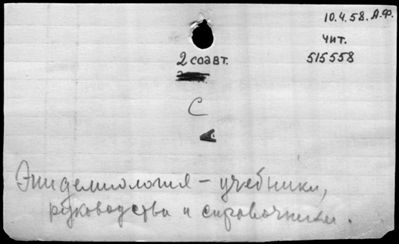 10.4.58. А.Ф.
чит.
515558
2 соавт.
С
Эпидемиология – учебники,
руководства и справочники.